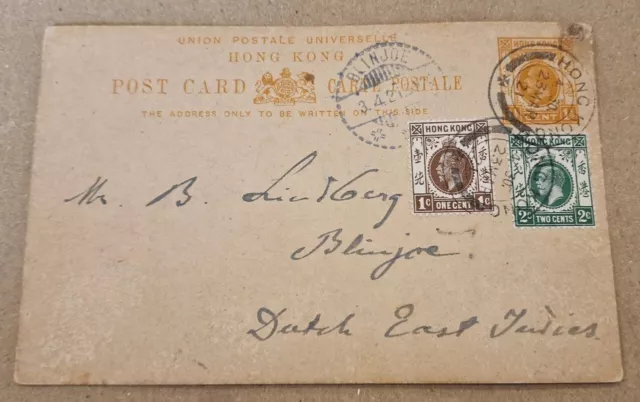 UNION POSTALE UNIVERSELLE
HONG KONG
POST CARD CARTE POSTALE
THE ADDRESS ONLY TO BE WRITTEN ON THIS SIDE
BLINJOE
3.4.2
HONG KONG
CENT
HONG KONG
HONG KONG
香港
ONE CENT
1c 1c
HONG KONG
香港
TWO CENTS
2c 2c
Mr. B. Lindberg
Blinjoe.
Dutch East Indies